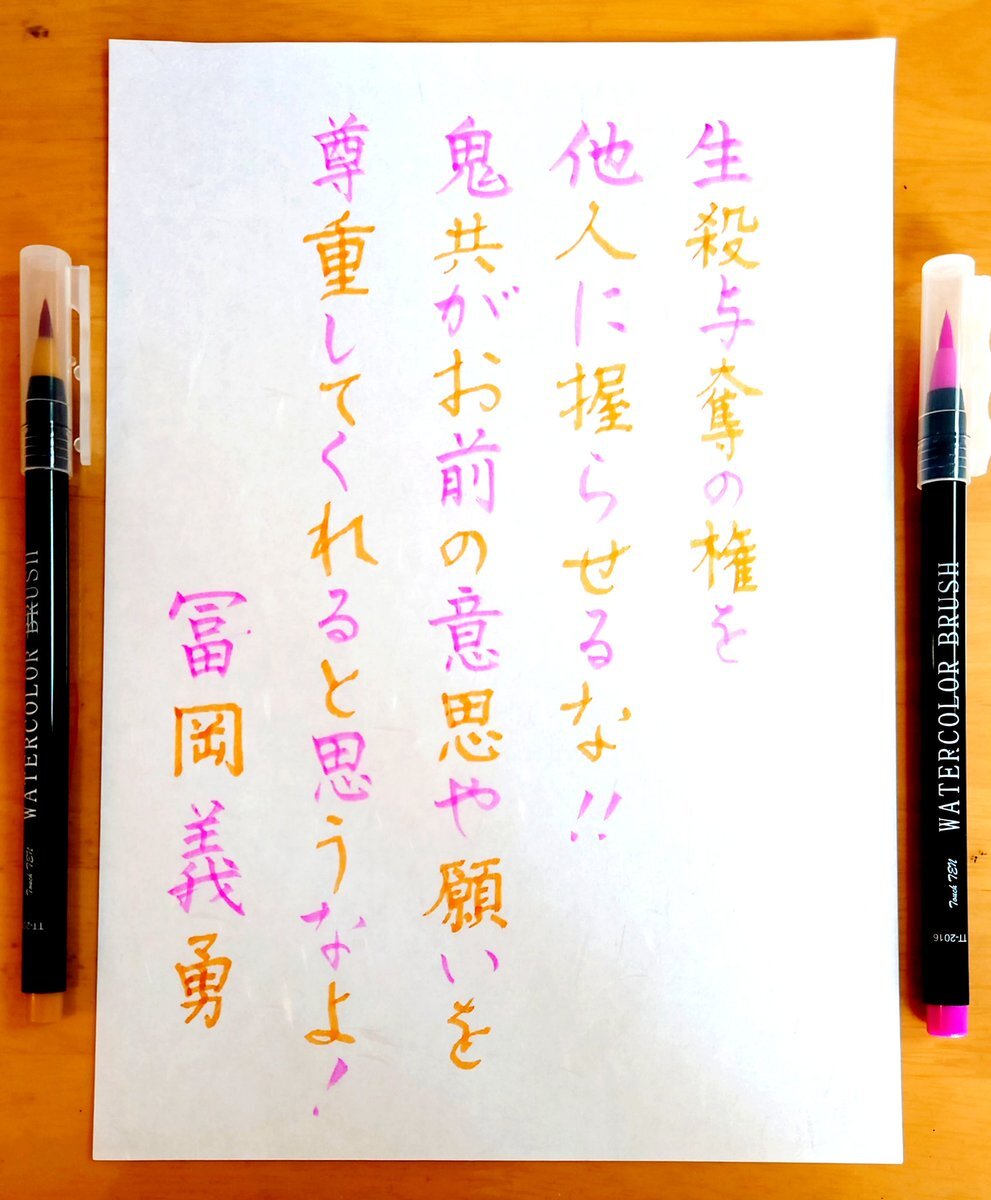 生殺与奪の権を
他人に握らせるな!!
鬼共がお前の意思や願いを
尊重してくれると思うなよ!
冨岡義勇
WATERCOLOR BRUSH
Touch TEN
WATERCOLOR BRUSH
Touch TEN
TT-2016